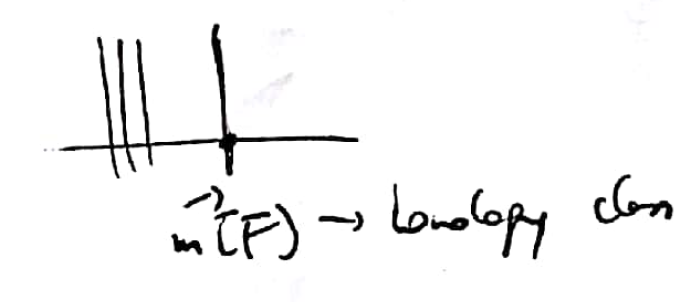 m[F) → homology class